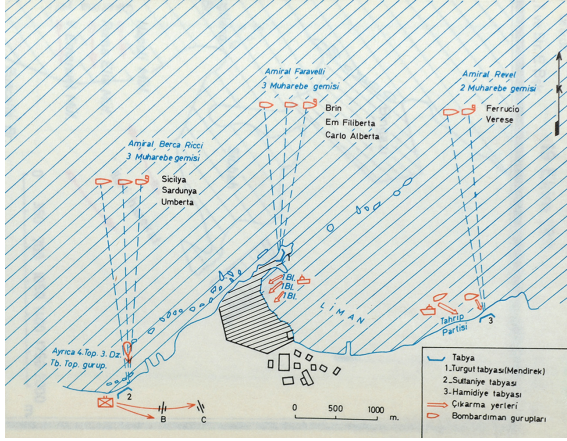 Amiral Faravelli
3 Muharebe gemisi
Brin
Em Filiberta
Carlo Alberta
Amiral Revel
2 Muharebe gemisi
Ferrucio
Verese
A
K
Amiral Berca Ricci
3 Muharebe gemisi
Sicilya
Sardunya
Umberta
1
1.Bl.
1.Bl.
1.Bl.
LİMAN
Tahrip
Partisi
3
Ayrıca 4.Top. 3. Dz.
Tb. Top. gurup.
2
B
C
0 500 1000 m.
Tabya
1_Turgut tabyası(Mendirek)
2_Sultaniye tabyası
3_Hamidiye tabyası
Çıkarma yerleri
Bombardıman gurupları